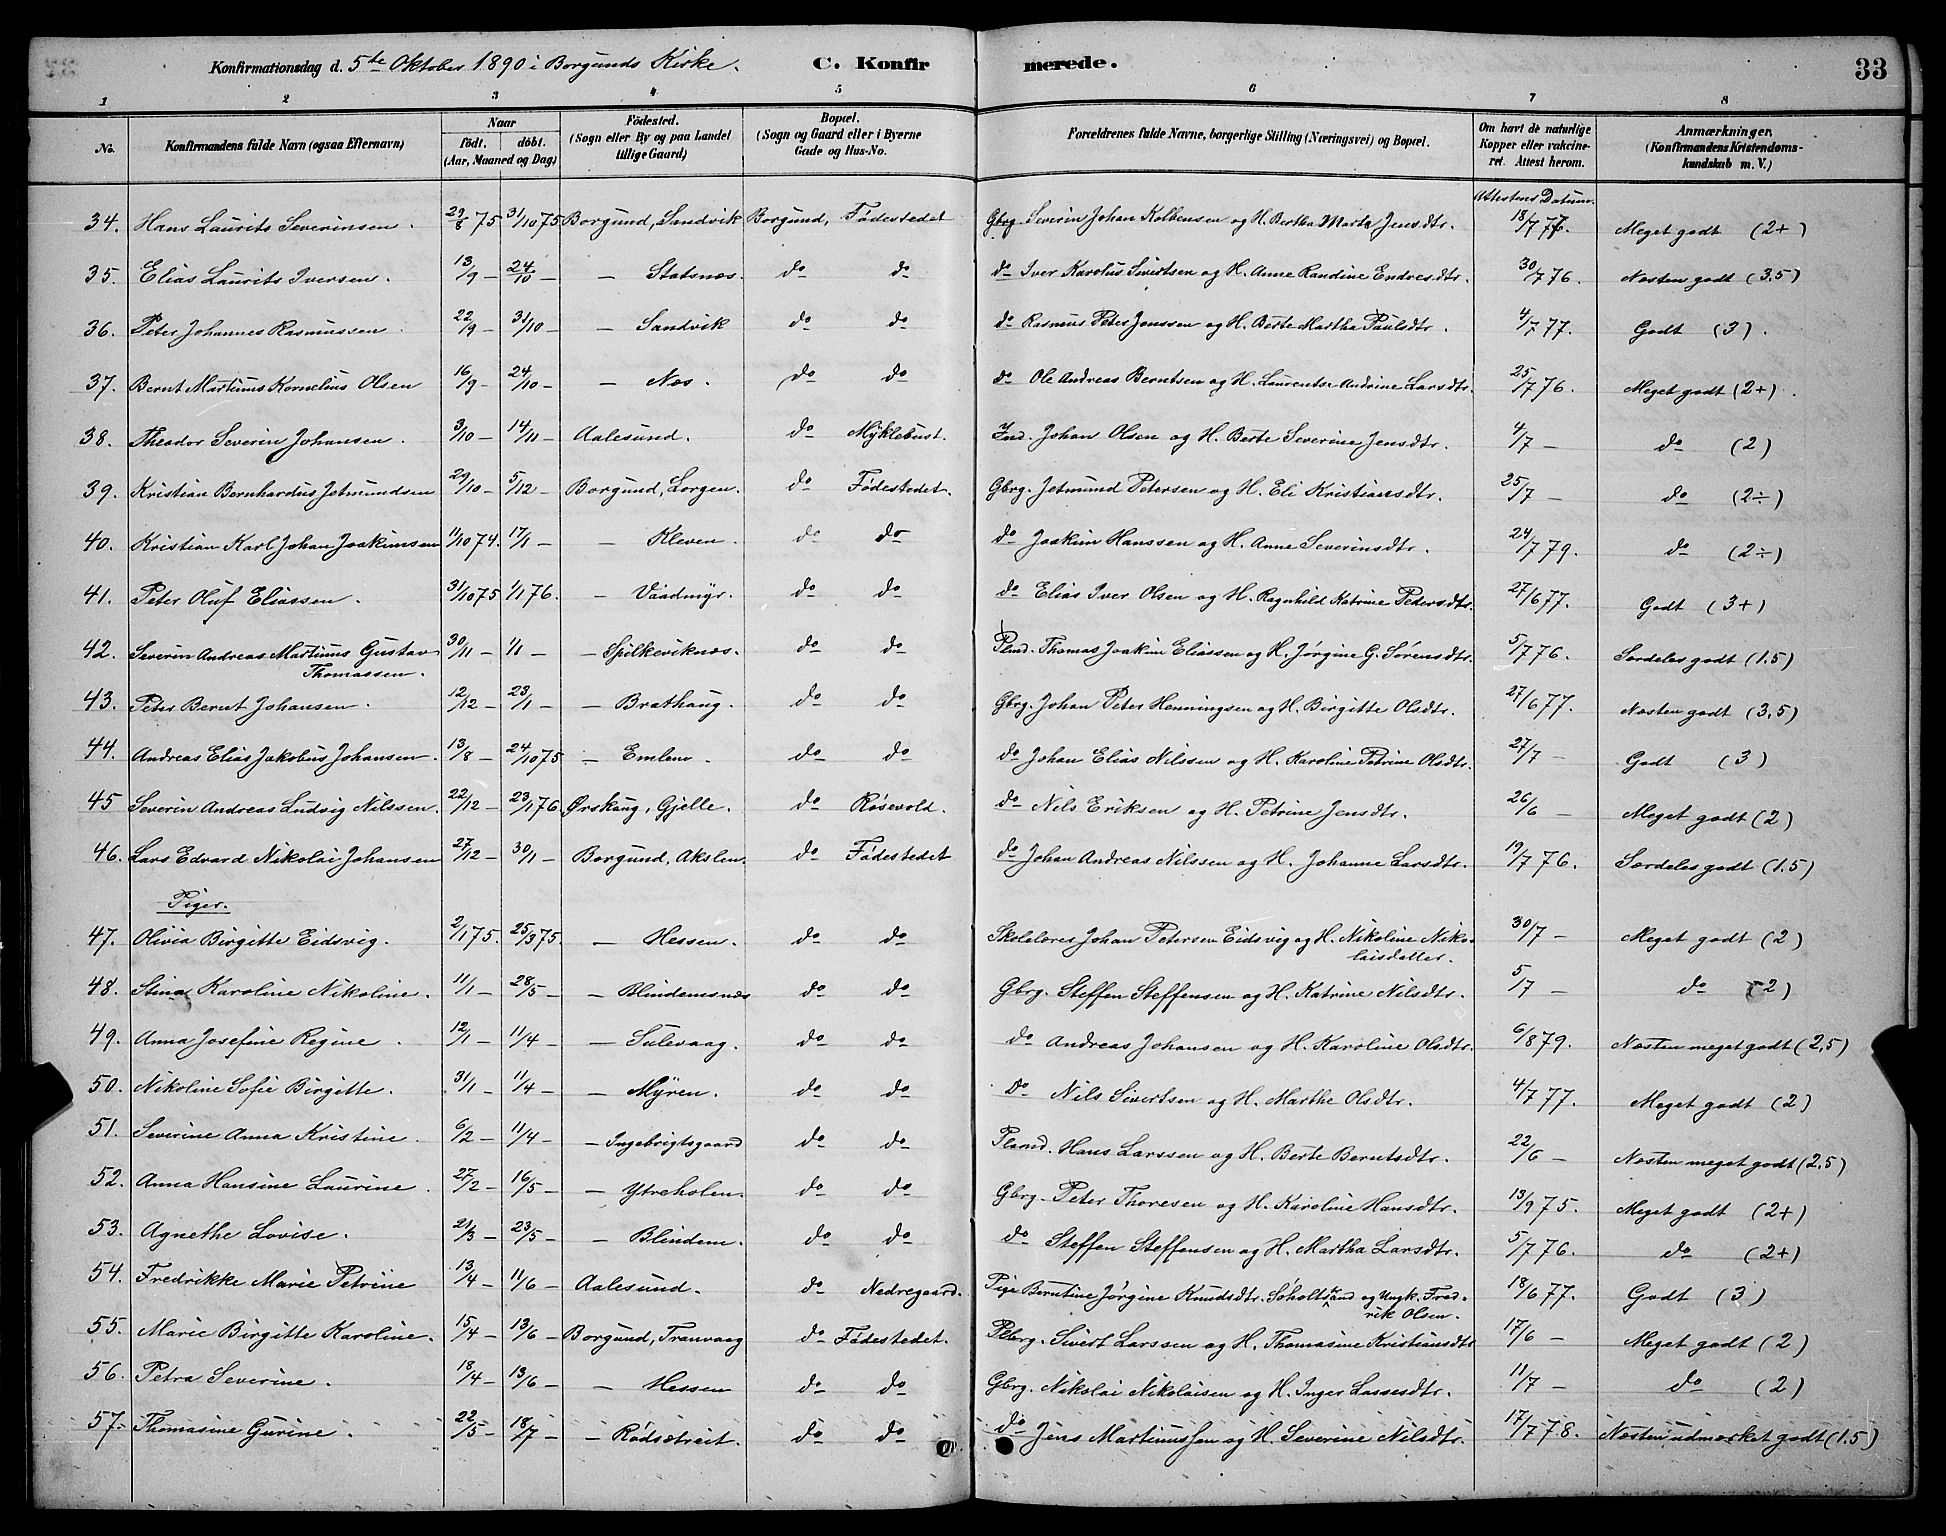 Konfirmationsdag d. 5te Oktober 1890 i Borgunds Kirke. C. Konfirmerede. 33
1 2 3 4 5 6 7 8
No. Konfirmandens fulde Navn (ogsaa Efternavn) Naar født. døbt. (Aar, Maaned og Dag) Fødested. (Sogn eller By og paa Landet tillige Gaard) Bopæl. (Sogn og Gaard eller i Byerne Gade og Hus-No. Forældrenes fulde Navne, borgerlige Stilling (Næringsvei) og Bopæl. Om havt de naturlige Kopper eller vakcineret. Attest herom. Anmærkninger. (Konfirmandens Kristendomskundskab m. V.)
Attestens Datum.
34. Hans Laurits Severinsen. 29/8 75 31/10 75 Borgund, Sandvik Borgund, Fødestedet Gbrg. Severin Johan Kolbensen og H. Bertha Marta Jensdtr. 18/7 77. Meget godt (2+)
35. Elias Laurits Iversen. 13/9 — 24/10 — — Statsnæs. do do do Iver Karolus Sivertsen og H. Anne Randine Endresdtr. 30/7 76. Næsten godt (3,5)
36. Peter Johannes Rasmussen 22/9 — 31/10 — — Sandvik do do do Rasmus Peter Jonssen og H. Berte Martha Paulsdtr. 4/7 77. Godt (3).
37. Bernt Martinus Kornelius Olsen 16/9 — 24/10 — — Næs. do do do Ole Andreas Berntsen og H. Laurentse Andrine Larsdtr. 25/7 76. Meget godt (2+).
38. Theodor Severin Johansen. 3/10 — 14/11 — Aalesund. do Myklebust. Ind. Johan Olsen og H. Berte Severine Jensdtr. 4/7 — do (2)
39. Kristian Bernhardus Jetmundsen 29/10 — 5/12 — Borgund, Lorgen. do Fødestedet. Gbrg. Jetmund Petersen og H. Eli Kristiansdtr. 25/7 — do (2÷)
40. Kristian Karl Johan Joakimsen 11/10 74. 17/1 — — Kleven. do do do Joakim Hanssen og H. Anne Severinsdtr. 24/7 79. do (2÷)
41. Peter Oluf Eliassen. 31/10 75 1/1 76. — Vaadmyr. do do do Elias Iver Olsen og H. Ragnhild Katrine Petersdtr. 27/6 77. Godt (3+)
42. Severin Andreas Martinus Gustav 30/11 — 1/1 — — Spilkeviknæs. do do Plmd. Thomas Joakim Eliassen og H. Jørgine G. Sørensdtr. 5/7 76. Særdeles godt (1.5)
Thomassen.
43. Peter Bernt Johansen. 12/12 — 23/1 — — Brathaug. do do Gbrg. Johan Peter Henningsen og H. Birgitte Olsdtr. 27/6 77. Næsten godt (3,5)
44. Andreas Elias Jakobus Johansen. 13/8 — 24/10 75 — Emlem. do do do Johan Elias Nilssen og H. Karoline Petrine Olsdtr. 27/7 — Godt (3)
45 Severin Andreas Ludvig Nilssen. 22/12 — 23/1 76 Ørskaug, Gjelle. do Røsevold. do Nils Eriksen og H. Petrine Jensdtr. 26/6 — Meget godt (2)
46. Lars Edvard Nikolai Johansen 27/12 — 30/1 — Borgund, Akslen do Fødestedet do Johan Andreas Nilssen og H. Johanne Larsdtr. 19/7 76. Særdeles godt (1.5)
Piger.
47. Olivia Birgitte Eidsvig. 2/1 75. 25/3 75. — Hessen. do do Skolelærer Johan Petersen Eidsvig og H. Nikoline Niko- 30/7 — Meget godt (2)
laisdatter.
48. Stina Karoline Nikoline. 11/1 — 28/5 — — Blindemsnæs do do Gbrg. Steffen Steffensen og H. Katrine Nilsdtr. 5/7 — do (2)
49. Anna Josefine Regine. 12/1 — 11/4 — — Sulevaag. do do do Andreas Johansen og H. Karoline Olsdtr. 6/8 79. Næsten meget godt (2,5)
50. Nikoline Sofie Birgitte. 31/1 — 11/4 — — Myren. do do Do Nils Sivertsen og H. Marthe Olsdtr. 4/7 77. Meget godt (2)
51. Severine Anna Kristine. 6/2 — 11/4 — — Ingebrigtsgaard do do Plamd. Hans Larssen og H. Berte Berntsdtr. 22/6 — Næsten meget godt (2,5)
52. Anna Hansine Laurine. 27/2 — 16/5 — — Ytreholen. do do Gbrg. Peter Thoresen og H. Karoline Hansdtr. 13/9 75. Meget godt (2+)
53. Agnethe Lovise. 21/3 — 23/5 — — Blindem. do do do Steffen Steffensen og H. Martha Larsdtr. 5/7 76. do (2+)
54. Fredrikke Marie Petrine 13/4 — 11/6 — Aalesund. do Nedregaard. Pige Berntine Jørgine Knudsdtr. Søholtstrand og Ungk. Fred- 18/6 77. Godt (3)
rik Olsen.
55. Marie Birgitte Karoline. 15/4 — 13/6 — Borgund, Tranvaag do Fødestedet. Pbrg. Sivert Larssen og H. Thomasine Kristiansdtr 17/6 — Meget godt (2)
56. Petra Severine. 18/4 — 13/6 — — Hessen do do Gbrg. Nikolai Nikolaisen og H. Inger Lassesdtr. 11/7 — do (2)
57. Thomasine Gurine. 22/5 — 18/7 — — Rødsetreit. do do do Jens Martinussen og H. Severine Nilsdtr. 17/7 78. Næsten udmærket godt (1.5)